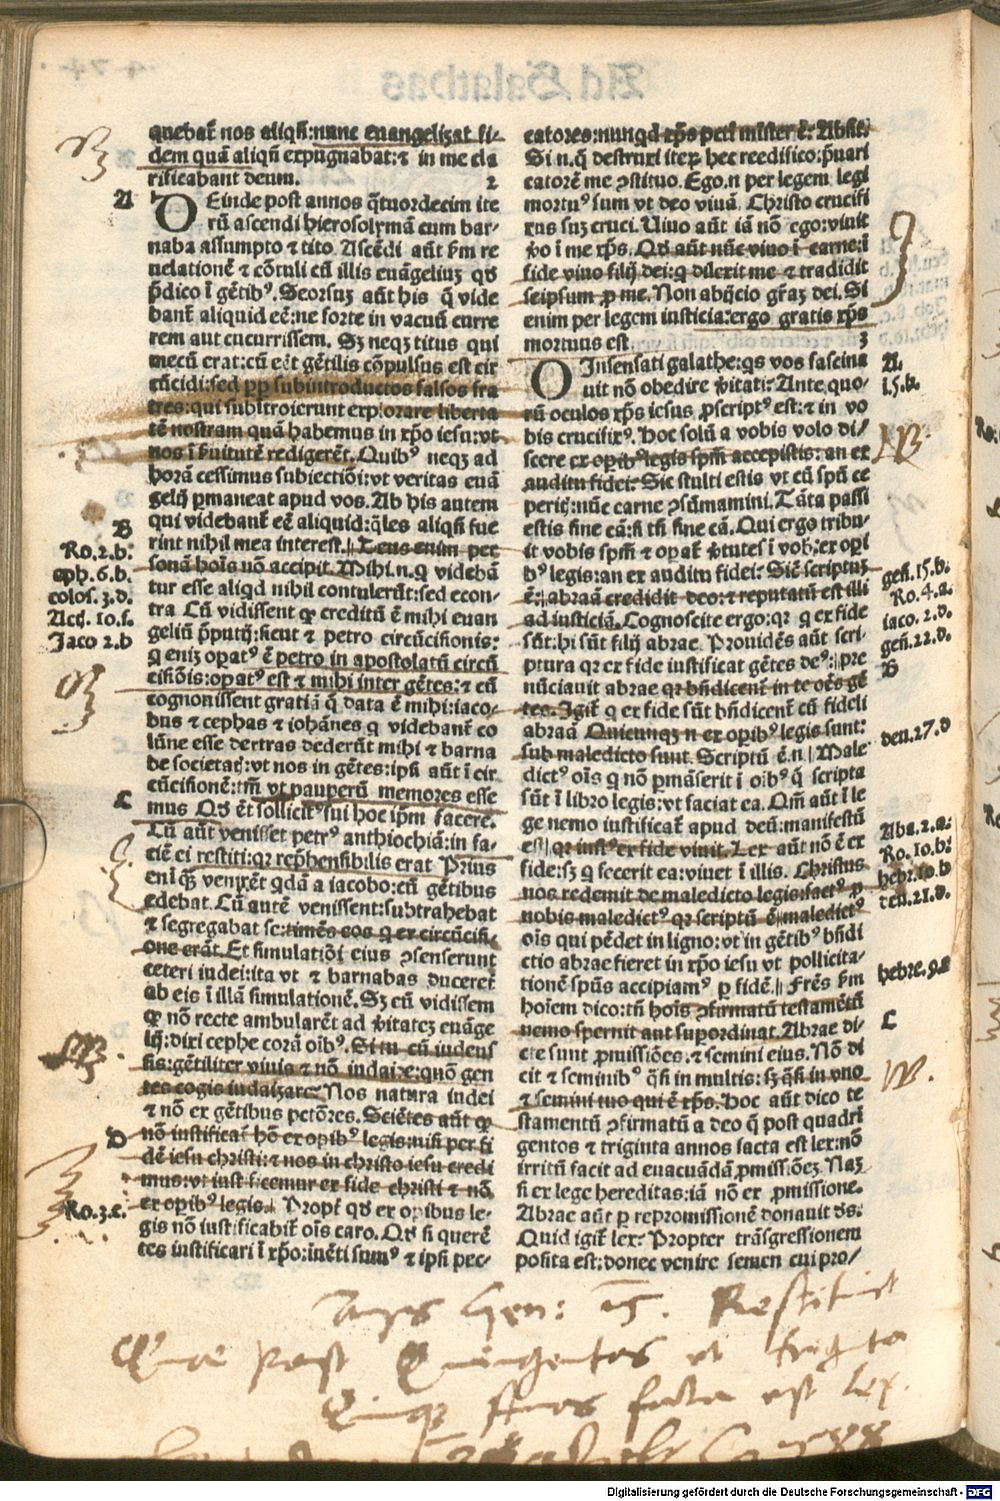 quebat̄ nos aliqñ:nunc euangelizat fi-
dem quā aliqñ expugnabat:⁊ in me cla
rificabant deum.
2
A
DEinde post annos q̄tuordecim ite
rū ascendi hierosolymā cum bar-
naba assumpto ⁊ tito. Ascēdi aūt ẜm re
uelationē ⁊ cōtuli cū illis euāgeliuꝫ qḋ
p̄dico ī gētibꝰ. Seorsuꝫ aūt his q̄ vide
bant̄ aliquid eē:ne forte in vacuū curre
rem aut cucurrissem. Sꝫ neqꝫ titus qui
mecū erat:cū eēt gētilis cōpulsus est cir
cūcidi:sed ꝓꝑ subintroductos falsos fra
tres:qui subītroierunt explorare liberta
tē nostram quā habemus in xp̄o iesu:vt
nos ī ẜuitutē redigerēt. Quibꝰ neqꝫ ad
horā cessimus subiectiōi:vt veritas euā
gelij ꝑmaneat apud vos. Ab his autem
B
qui videbant̄ eē aliquid:q̄les aliqñ fue
Ro.2.b.
rint nihil mea interest.|| Deus enim per
eph.6.b.
sonā hoīs nō accipit. Mihi.n.q videbā
colos.3.d.
tur esse aliqd nihil contulerūt:sed econ-
Act.10.f.
tra Cū vidissent qꝛ creditū ē mihi euan
Jaco 2.b
geliū p̄putij:sicut ⁊ petro circūcisionis:
q eniꝫ opatꝰ ē petro in apostolatū circū
cisiōis:opatꝰ est ⁊ mihi inter gētes:⁊ cū
cognonissent gratiā q̄ data ē mihi:iaco-
bus ⁊ cephas ⁊ iohānes q videbant̄ co
lūne esse dextras dederūt mihi ⁊ barna
be societatꝭ:vt nos in gētes:ipsi aūt ī cir
cūcisionē:tm̄ vt pauperū memores esse
C
mus Qḋ ēt sollicitꝰ fui hoc ip̄m facere.
Cū aūt venisset petrꝰ anthiochiā:in fa-
ciē ei restiti:qꝛ rep̄hensibilis erat Prius
enī q̄ꝫ venirēt qdā a iacobo:cū gētibus
edebat. Cū autē venissent:subtrahebat
⁊ segregabat se:timēs eos q ex circūcisi-
one erāt. Et simulatiōi eius ꝯsenserunt
ceteri iudei:ita vt ⁊ barnabas duceret̄
ab eis ī illā simulationē. Sꝫ cū vidissem
qꝛ nō recte ambularēt ad v̄itateꝫ euāge
lij:dixi cephe corā oībꝰ. Si tu cū iudeus
sis:gētiliter viuis ⁊ nō iudaice:quō gen
tes cogis iudaizare? Nos natura iudei
⁊ nō ex gētibus pctōres. Sciētes aūt qꝛ
D
nō iustificat̄ hō ex opibꝰ legis:nisi per fi
dē iesu christi:⁊ nos in christo iesu credi
mus:vt iustificemur ex fide christi ⁊ nō
Ro.3.c.
ex opibꝰ legis.|| Propt̄ qḋ ex opibus le-
gis nō iustificabit̄ oīs caro. Qḋ si querē
tes iustificari ī xp̄o:inēti sumꝰ ⁊ ipsi pec-
catores:nunqd xp̄s pcti mīster ē? Absit.
Si n.q̄ destruxi iteꝝ hec reedifico:p̄uari
catorē me ꝯstituo. Ego.n per legem legi
mortuꝰ sum vt deo viuā. Christo crucifi
xus suꝫ cruci. Uiuo aūt iā nō ego:viuit
v̄o ī me xp̄s. Qḋ aūt nūc viuo ī carne:ī
fide viuo filij dei:q dilexit me ⁊ tradidit
seipsum ꝓ me. Non abijcio gr̄aꝫ dei. Si
enim per legem iusticia:ergo gratis xp̄s
mortuus est
3
A.
OInsensati galathe:qs vos fascina
15.b.
uit nō obedire v̄itati? Ante quo-
rū oculos xp̄s iesus ꝓscriptꝰ est:⁊ in vo
bis crucifixꝰ. Hoc solū a vobis volo di-
scere ex opibꝰ legis sp̄m accepistis:an ex
auditu fidei? Sic stulti estis vt cū spū ce
peritꝭ:nūc carne ꝯsūmamini. Tāta passi
estis sine cā:si tn̄ sine cā. Qui ergo tribu-
it vobis sp̄m ⁊ opat̄ v̄tutes ī vob̄:ex opi
bꝰ legis:an ex auditu fidei? Sic̄ scriptuꝫ
gen̄.15.b.
ē:|abraā credidit deo:⁊ reputatū est illi
Ro.4.a.
ad iusticiā. Cognoscite ergo:qꝛ q ex fide
iaco.2.d.
sūt:hi sūt filij abrae. Prouidēs aūt scri-
gen̄.22.d.
ptura qꝛ ex fide iustificat gētes deꝰ:||pre
B
nūciauit abrae qꝛ bn̄dicent̄ in te oēs gē
tes. Igit̄ q ex fide sūt bn̄dicent̄ cū fideli
abraā Quicunqꝫ n ex opibꝰ legis sunt:
deu.27.d
sub maledicto sunt. Scriptū ē.n||Male
dictꝰ oīs q nō ꝑmāserit ī oībꝰ q̄ scripta
sūt ī libro legis:vt faciat ea. Qm̄ aūt ī le
ge nemo iustificat̄ apud deū:manifestū
Aba.2.a.
est|qꝛ iustꝰ ex fide viuit. Lex aūt nō ē ex
Ro.10.b.
fide:sꝫ q fecerit ea:viuet ī illis. Christus
hebr.10.b
nos redemit de maledicto legis:factꝰ ꝓ
deu.21.d.
nobis maledictꝰ qꝛ scriptū ē|maledictꝰ
oīs qui pēdet in ligno:vt in gētibꝰ bn̄di
ctio abrae fieret in xp̄o iesu vt pollicita-
hebre.9.
tionē spūs accipiamꝰ ꝑ fidē.|| Fr̄es ẜm
hoīem dico:tn̄ hoīs ꝯfirmatū testamētū
C
nemo spernit aut suꝑordinat. Abrae di-
cte sunt ꝓmissiōes:⁊ semini eius. Nō di
cit ⁊ seminibꝰ q̄si in multis:sꝫ q̄si in vno
⁊ semini tuo qui ē xp̄s. Hoc aūt dico te
stamentū ꝯfirmatū a deo q̄ post quadrī
gentos ⁊ triginta annos facta est lex:nō
irritū facit ad euacuādā ꝓmissiōeꝫ. Naꝫ
si ex lege hereditas:iā nō ex ꝓmissione.
Abrae aūt ꝑ repromissionē donauit ds̄.
Quid igit̄ lex? Propter trāsgressionem
posita est:donec venire semen cui pro-
Restituit
Quae post Quingentos et triginta
Quinqꝫ Annos facta est lex.
Digitalisierung gefördert durch die Deutsche Forschungsgemeinschaft - DFG